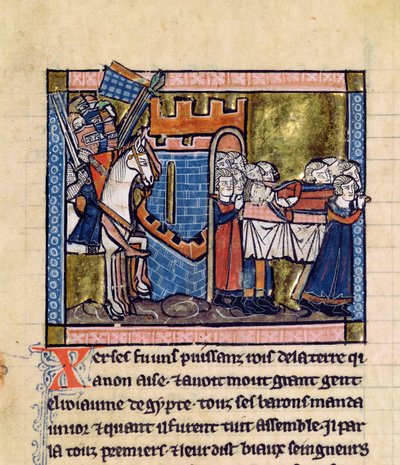 Xerses fu uns puissanz rois de la terre qi
anon aise. ⁊ avoit mout grant gent
el roiaume degypte. touz ses barons manda
un ior ⁊ quant il furent tuit assemble. Il par
la touz premiers ⁊ leur dist biaux seingneurs